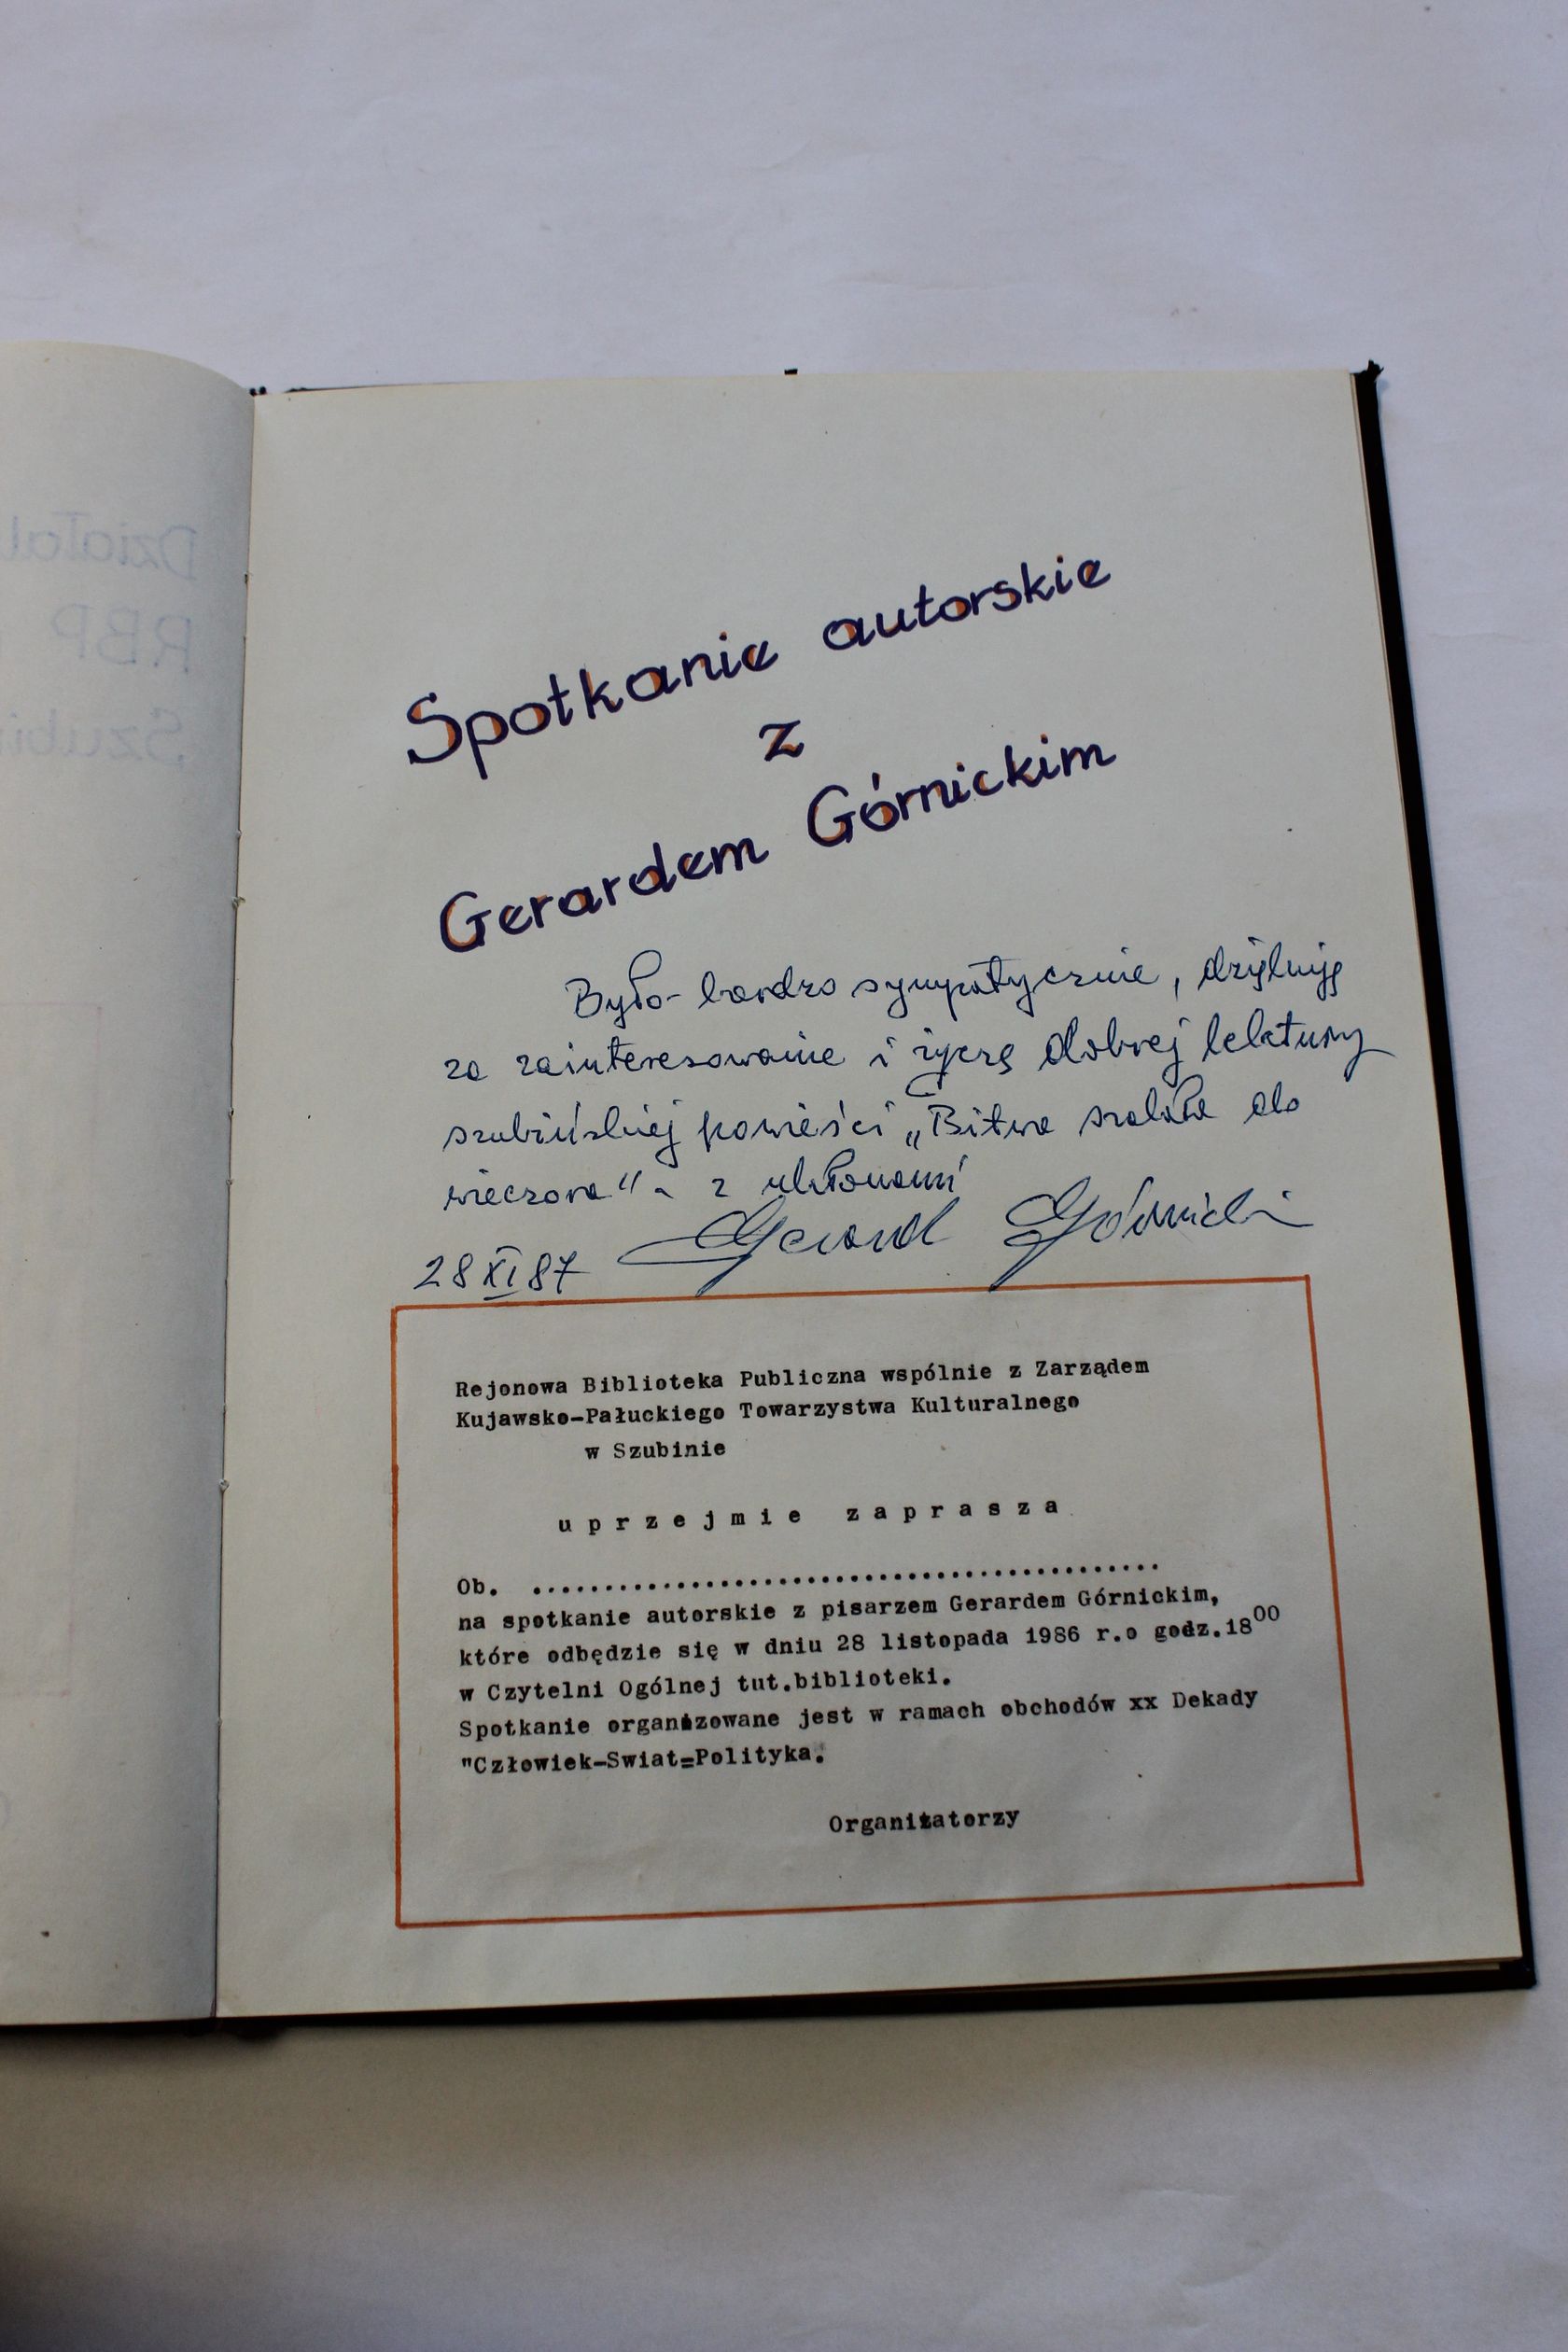 Działal
RBP
Szubi
Spotkanie autorskie
z
Gerardem Górnickim
Było bardzo sympatycznie, dziękuję
za zainteresowanie i życzę dobrej lektury
szubińskiej powieści „Bitwa szalała do
wieczora" - z ukłonami
Gerard Górnicki
28 XI 87
Rejonowa Biblioteka Publiczna wspólnie z Zarządem
Kujawsko-Pałuckiego Towarzystwa Kulturalnego
w Szubinie
u p r z e j m i e z a p r a s z a
Ob. ............................................
na spotkanie autorskie z pisarzem Gerardem Górnickim,
które odbędzie się w dniu 28 listopada 1986 r.o godz.18⁰⁰
w Czytelni Ogólnej tut.biblioteki.
Spotkanie organizowane jest w ramach obchodów xx Dekady
"Człowiek-Swiat=Polityka.
Organizatorzy